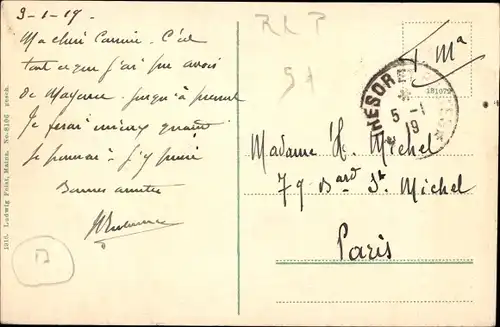 3-1-19.
Ma chère Carmen. C'est
tout ce que j'ai pu avoir
de Mayence. Jusqu'à présent
Je ferai mieux quand
je pourrai. J'y joins
Bonnes amitiés
1916. Ludwig Feist, Mainz. No. 8106 gesch.
B
R L P
181079
TRESOR ET
5-1
19
Madame H. Michel
79 Bard St. Michel
Paris